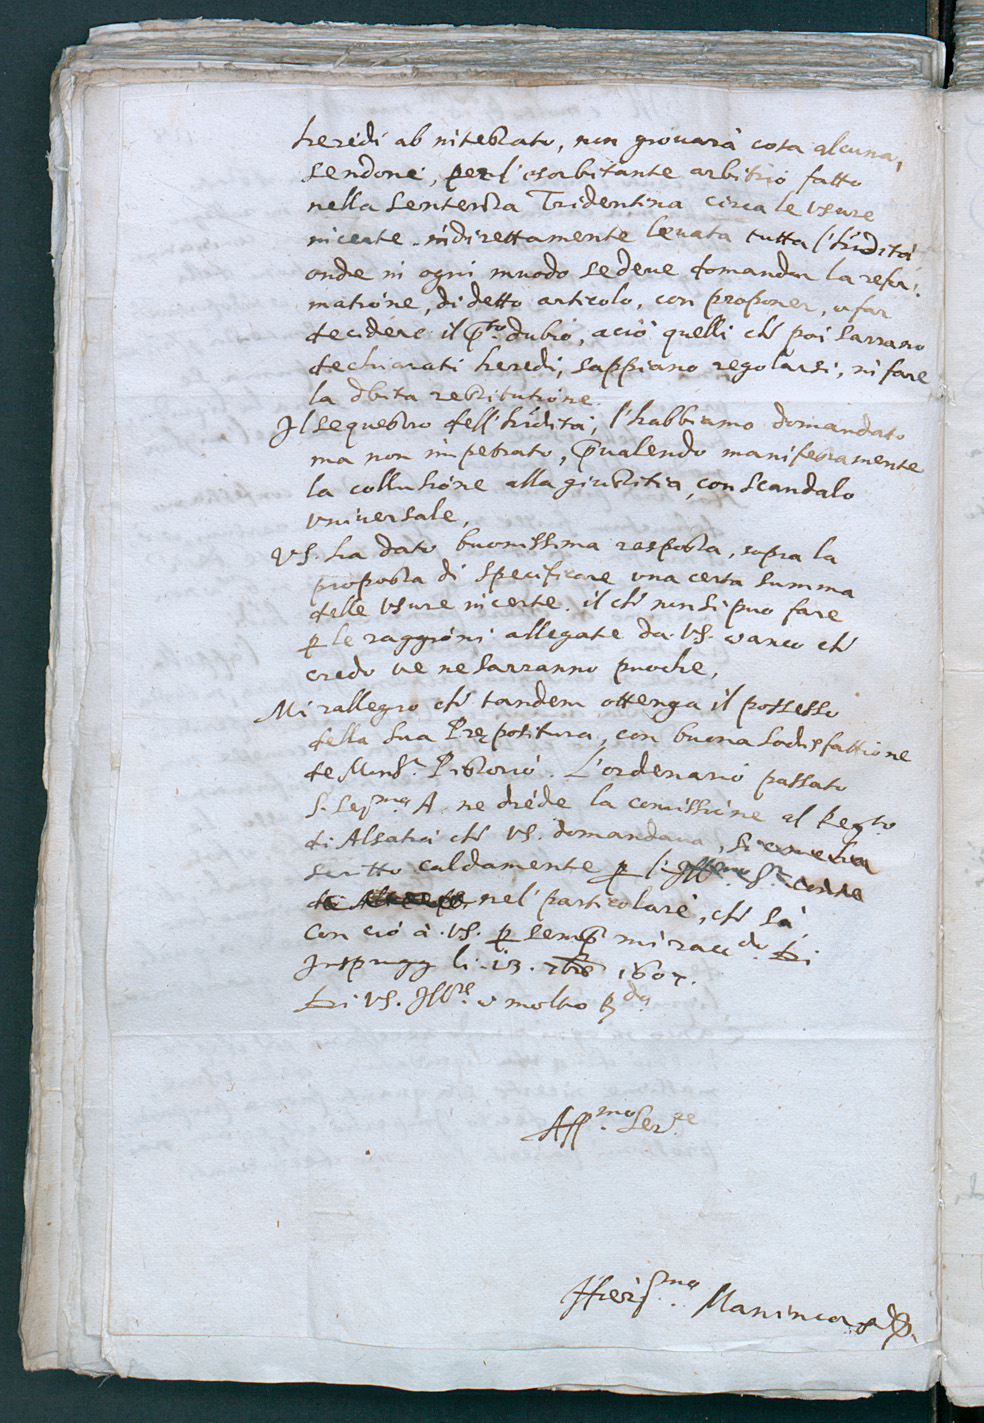 heredi ab intestato, non giouarà cosa alcuna,
sendone, per l'esorbitante arbitrio fatto
nella sentenza Tridentina circa le vsure
incerte, indirettamente leuata tutta l'hrdità
onde in ogni muodo se deue domandar la refor:
matione, di detto articolo, con proponer, et far
decidere il pnto dubio, aciò quelli ch' poi sarrano
dechiarati heredi, sappiano regolarsi, in fare
la dbita restitutione.
Il sequestro dell' hrdità, l'habbiamo domandato
ma non impetrato, pualendo manifestamente
la collusione alla giustitia, con scandalo
vniuersale,
VS. ha dato buonissima resposta, sopra la
proposta di specificare vna certa summa
delle vsure incerte. il ch' non si può fare
p le raggioni allegate da VS. et anco ch'
credo ve ne sarranno puoche,
Mi rallegro ch' tandem ottenga il possesso
della sua Prępositura, con buona sodisfattione
de Monsr. Pistorio. L'ordenario passato
S. Serma A. ne diede la comissione al Regto.
di Alsatia ch' VS. domandaua,
scritto caldamente p l'
nel particolare, ch' sà,
Con ciò à .VS. p semp mi raccdo. Di
Inspruggh li .13. 7bre 1607.
Di VS. Illre. et molto Rda
Affmo. Serre
Hiermo. Manincor D.